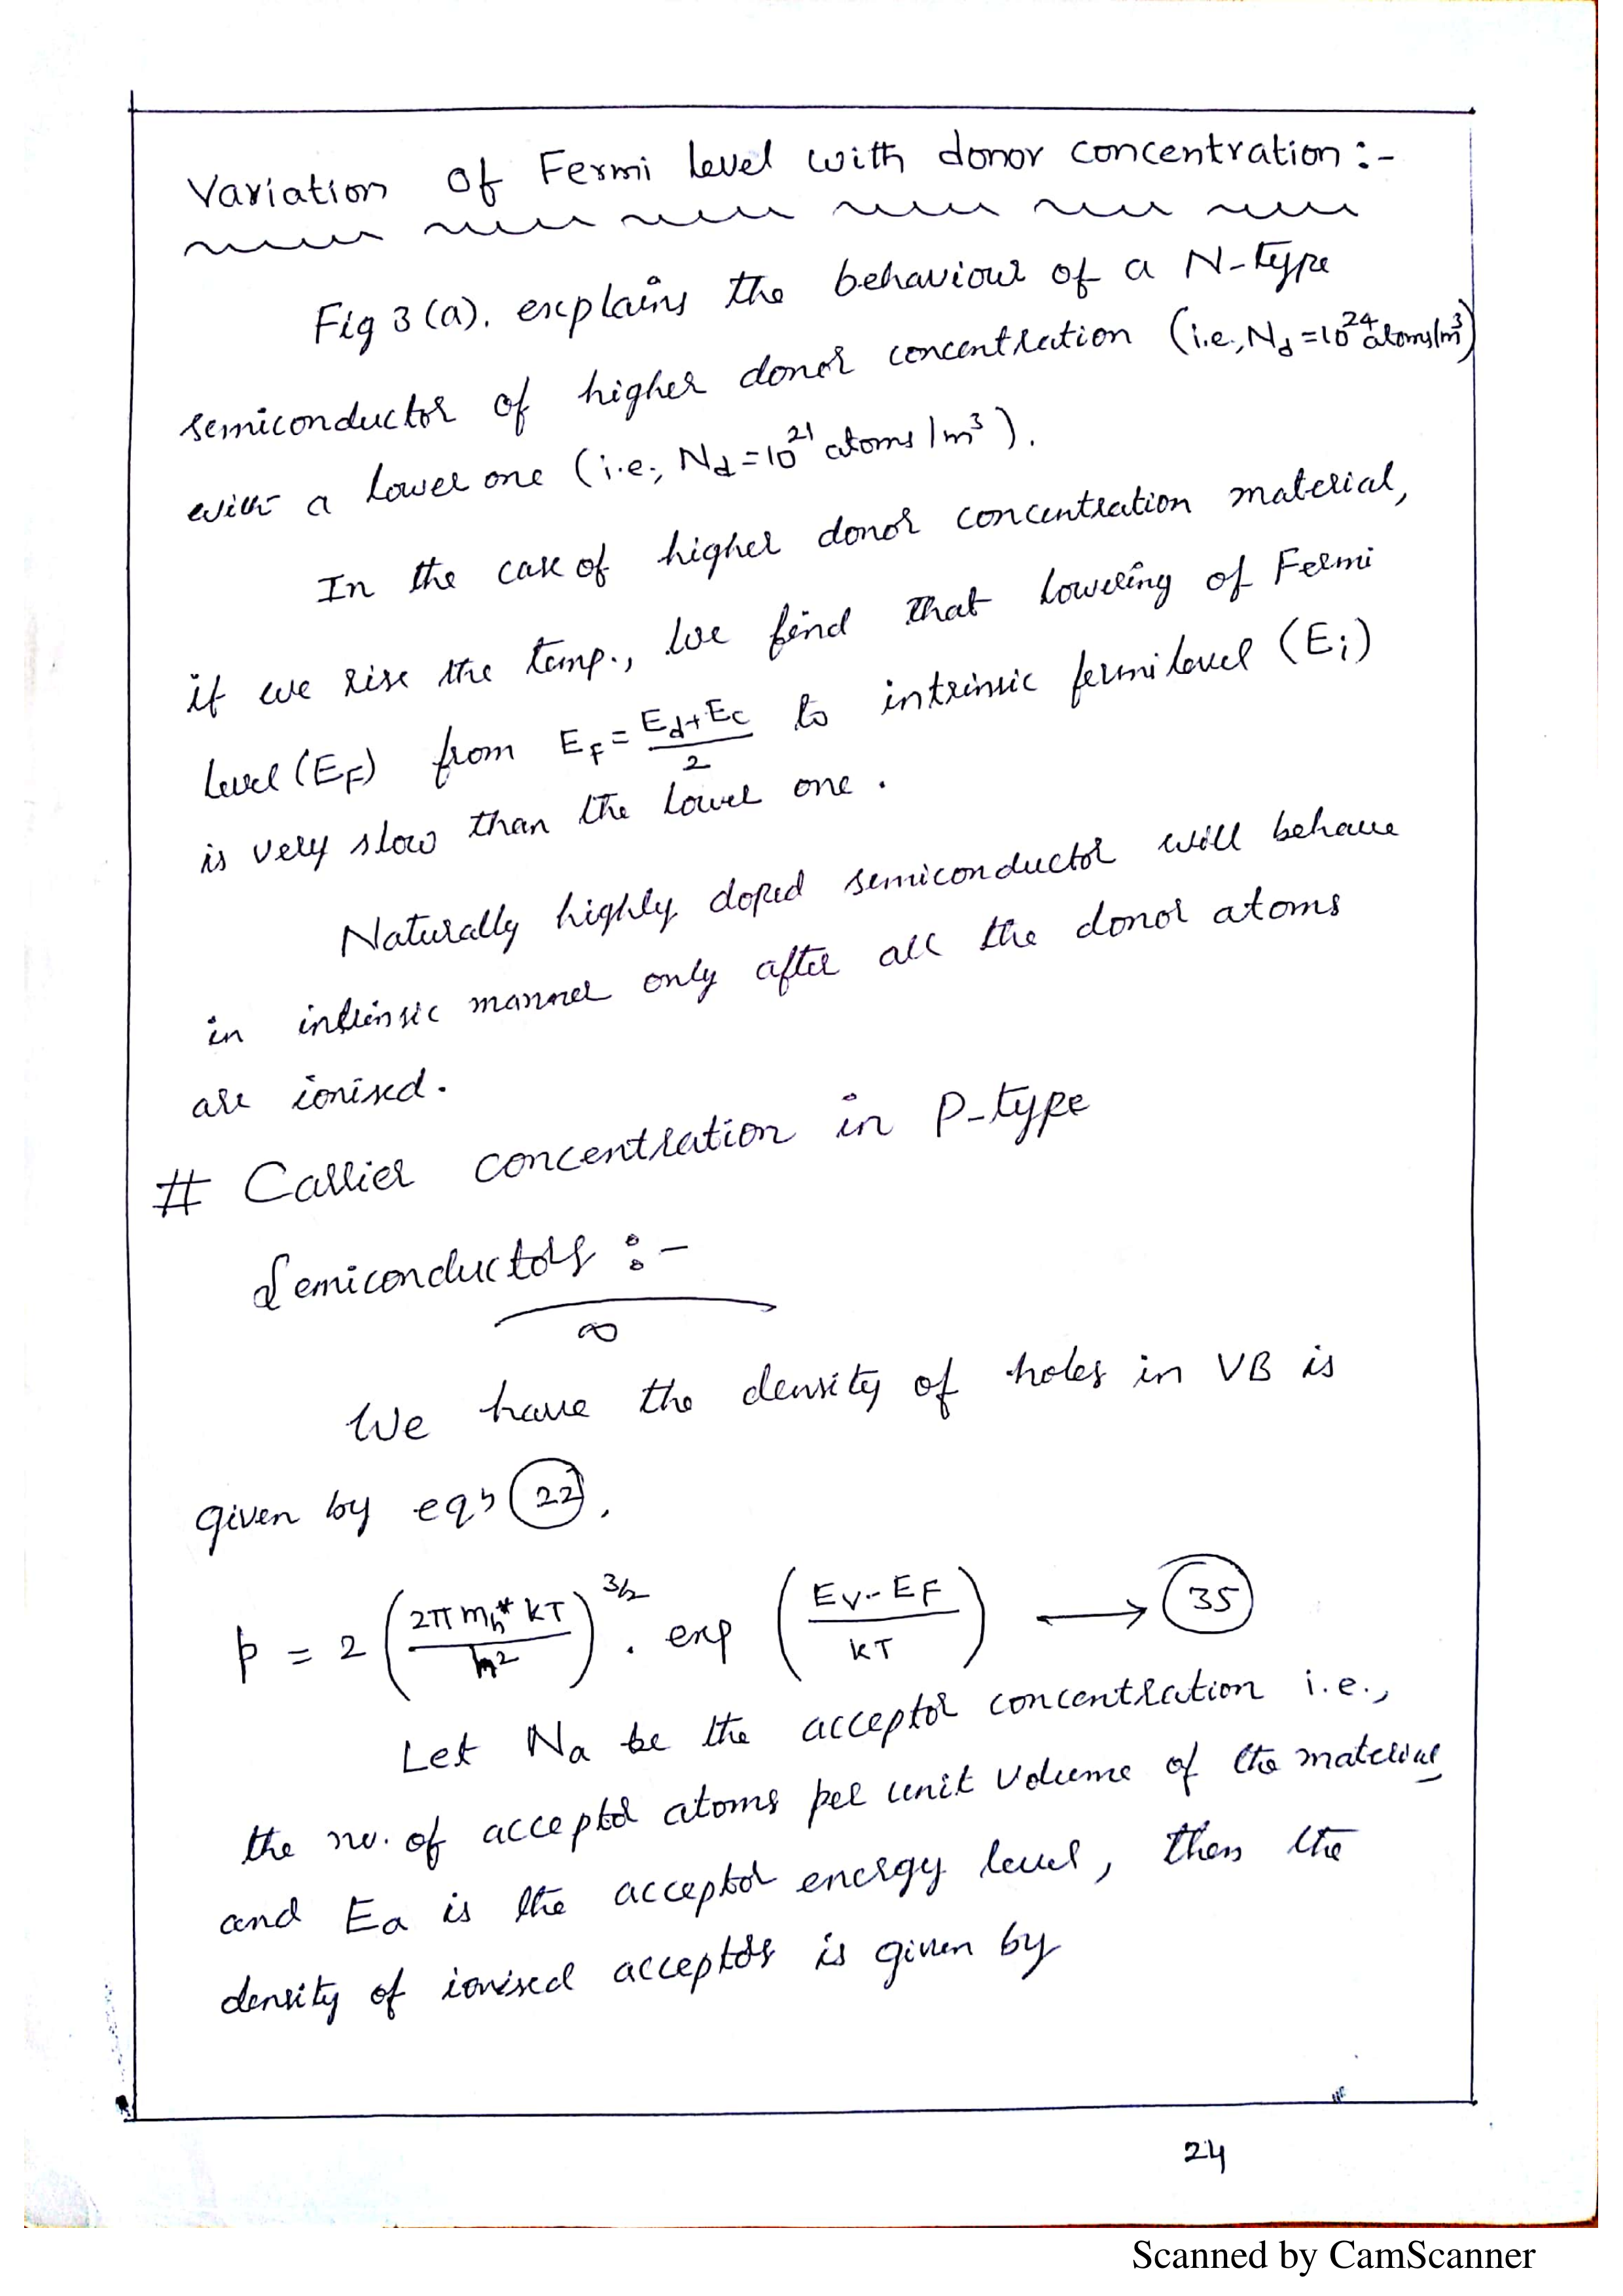 Variation of Fermi level with donor concentration :-
Fig 3(a). explains the behaviour of a N-type
semiconductor of higher donor concentration (i.e., N_d = 10^24 atoms/m^3)
with a lower one (i.e., N_d = 10^21 atoms/m^3).
In the case of higher donor concentration material,
if we rise the temp., we find that lowering of Fermi
level (E_F) from E_F = (E_d + E_c)/2 to intrinsic fermi level (E_i)
is very slow than the lower one.
Naturally highly doped semiconductor will behave
in intrinsic manner only after all the donor atoms
are ionised.
# Carrier concentration in P-type
Semiconductors :-
We have the density of holes in VB is
given by eqn (22),
p = 2 (2π m_h* kT / h^2)^3/2 . exp ((E_V - E_F) / kT) ⟶ (35)
Let N_a be the acceptor concentration i.e.,
the no. of acceptor atoms per unit volume of the material
and E_a is the acceptor energy level, then the
density of ionised acceptors is given by
24
Scanned by CamScanner